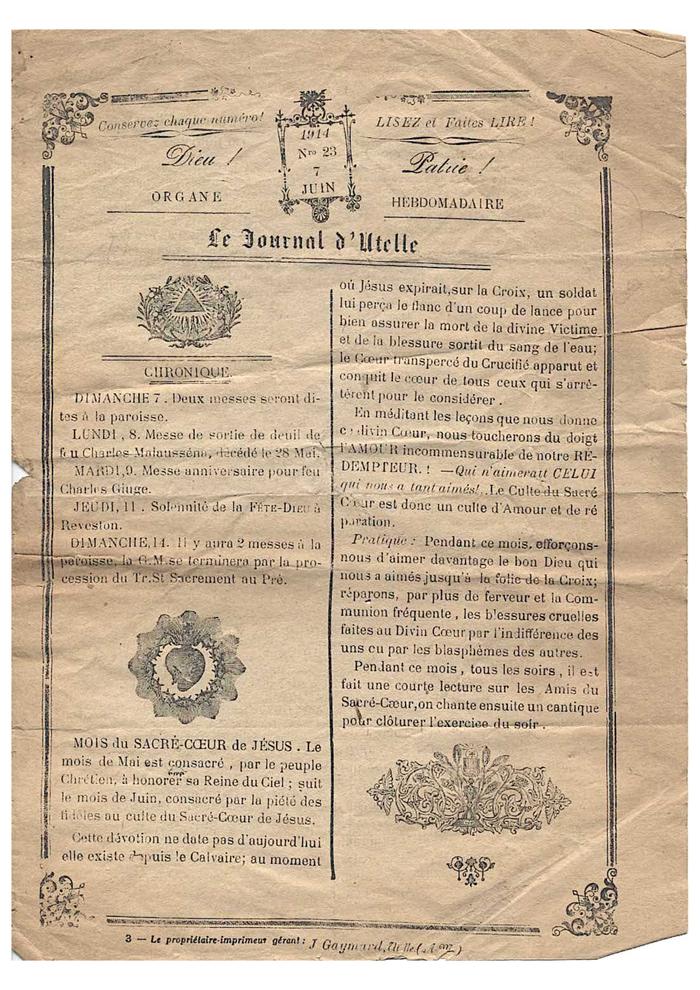 Conservez chaque numéro!
1914
Nro 23
7
JUIN
LISEZ et Faites LIRE!
Dieu !
Patrie !
ORGANE
HEBDOMADAIRE
Le Journal d'Utelle
CHRONIQUE
DIMANCHE 7. Deux messes seront di-
tes à la paroisse.
LUNDI, 8. Messe de sortie de deuil de
feu Charles Malausséna, décédé le 28 Mai.
MARDI,9. Messe anniversaire pour feu
Charles Giuge.
JEUDI, 11. Solennité de la FÊTE-DIEU à
Reveston.
DIMANCHE,14. Il y aura 2 messes à la
paroisse, la G.M.se terminera par la pro-
cession du Tr.St Sacrement au Pré.
MOIS du SACRÉ-CŒUR de JÉSUS . Le
mois de Mai est consacré , par le peuple
Chrétien, à honorer sa Reine du Ciel ; suit
le mois de Juin, consacré par la piété des
fidèles au culte du Sacré-Cœur de Jésus.
Cette dévotion ne date pas d'aujourd'hui
elle existe depuis le Calvaire; au moment
où Jésus expirait,sur la Croix, un soldat
lui perça le flanc d'un coup de lance pour
bien assurer la mort de la divine Victime
et de la blessure sortit du sang de l'eau;
le Cœur transpercé du Crucifié apparut et
conquit le cœur de tous ceux qui s'arrê-
tèrent pour le considérer .
En méditant les leçons que nous donne
ce divin Cœur, nous toucherons du doigt
l'AMOUR incommensurable de notre RÉ-
DEMPTEUR. ! —Qui n'aimerait CELUI
qui nous a tant aimés!..Le Culte du Sacré
Cœur est donc un culte d'Amour et de ré
paration.
Pratique : Pendant ce mois, efforçons-
nous d'aimer davantage le bon Dieu qui
nous a aimés jusqu'à la folie de la Croix;
réparons, par plus de ferveur et la Com-
munion fréquente , les blessures cruelles
faites au Divin Cœur par l'indifférence des
uns ou par les blasphèmes des autres.
Pendant ce mois , tous les soirs , il est
fait une courte lecture sur les Amis du
Sacré-Cœur,on chante ensuite un cantique
pour clôturer l'exercice du soir .
3 — Le propriétaire-imprimeur gérant: J Gaymard, Utelle (A.M.)